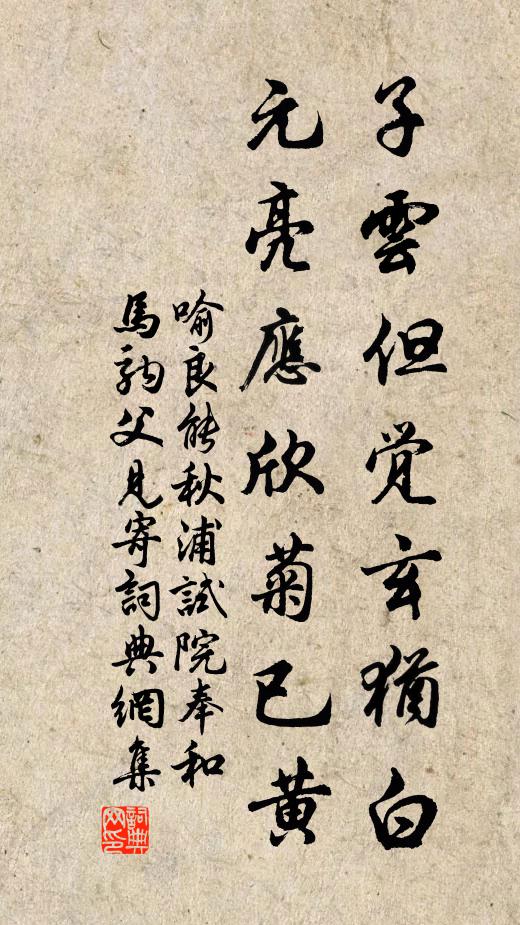 子雲但觉玄猶白
元亮應欣菊已黄
喻良能秋浦試院奉和
馬駒父見寄詞典網集
詞典网印